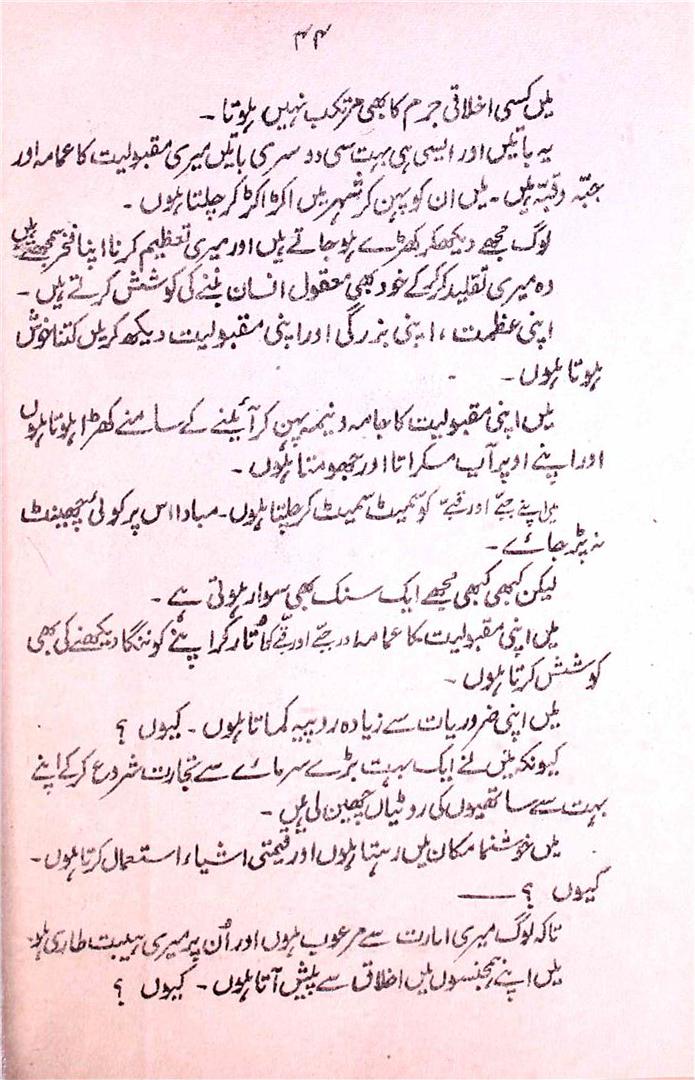 ۴۴
میں کسی اخلاقی جرم کا بھی مرتکب نہیں ہوتا ۔
یہ باتیں اور ایسی ہی بہت سی دوسری باتیں میری مقبولیت کا عمامہ اور
جبّہ و قبّہ ہیں ۔ میں ان کو پہن کر شہر میں اکڑ اکڑ کر چلتا ہوں ۔
لوگ مجھے دیکھ کر کھڑے ہو جاتے ہیں اور میری تعظیم کرنا اپنا فخر سمجھتے ہیں
وہ میری تقلید کر کے خود بھی معقول انسان بننے کی کوشش کرتے ہیں ۔
اپنی عظمت ، اپنی بزرگی اور اپنی مقبولیت دیکھ کر میں کتنا خوش
ہوتا ہوں ۔
میں اپنی مقبولیت کا جامہ و نیمہ پہن کر آئینے کے سامنے کھڑا ہوتا ہوں
اور اپنے اوپر آپ مسکراتا اور جھومتا ہوں ۔
میں اپنے جبّے اور قبّے کو سمیٹ سمیٹ کر چلتا ہوں ۔ مبادا اس پر کوئی چھینٹ
نہ پڑ جائے ۔
لیکن کبھی کبھی مجھے ایک سنک بھی سوار ہوتی ہے ۔
میں اپنی مقبولیت کا عمامہ اور جبّے اور قبّے کو اُتار کر اپنے کو ننگا دیکھنے کی بھی
کوشش کرتا ہوں ۔
میں اپنی ضروریات سے زیادہ روپیہ کماتا ہوں ۔ کیوں ؟
کیونکہ میں نے ایک بہت بڑے سرمائے سے تجارت شروع کر کے اپنے
بہت سے ساتھیوں کی روٹیاں چھین لی ہیں ۔
میں خوشنما مکان میں رہتا ہوں اور قیمتی اشیاء استعمال کرتا ہوں ۔
کیوں ؟ ——
تاکہ لوگ میری امارت سے مرعوب ہوں اور اُن پر میری ہیبت طاری ہو
میں اپنے ہمجنسوں میں اخلاق سے پیش آتا ہوں ۔ کیوں ؟